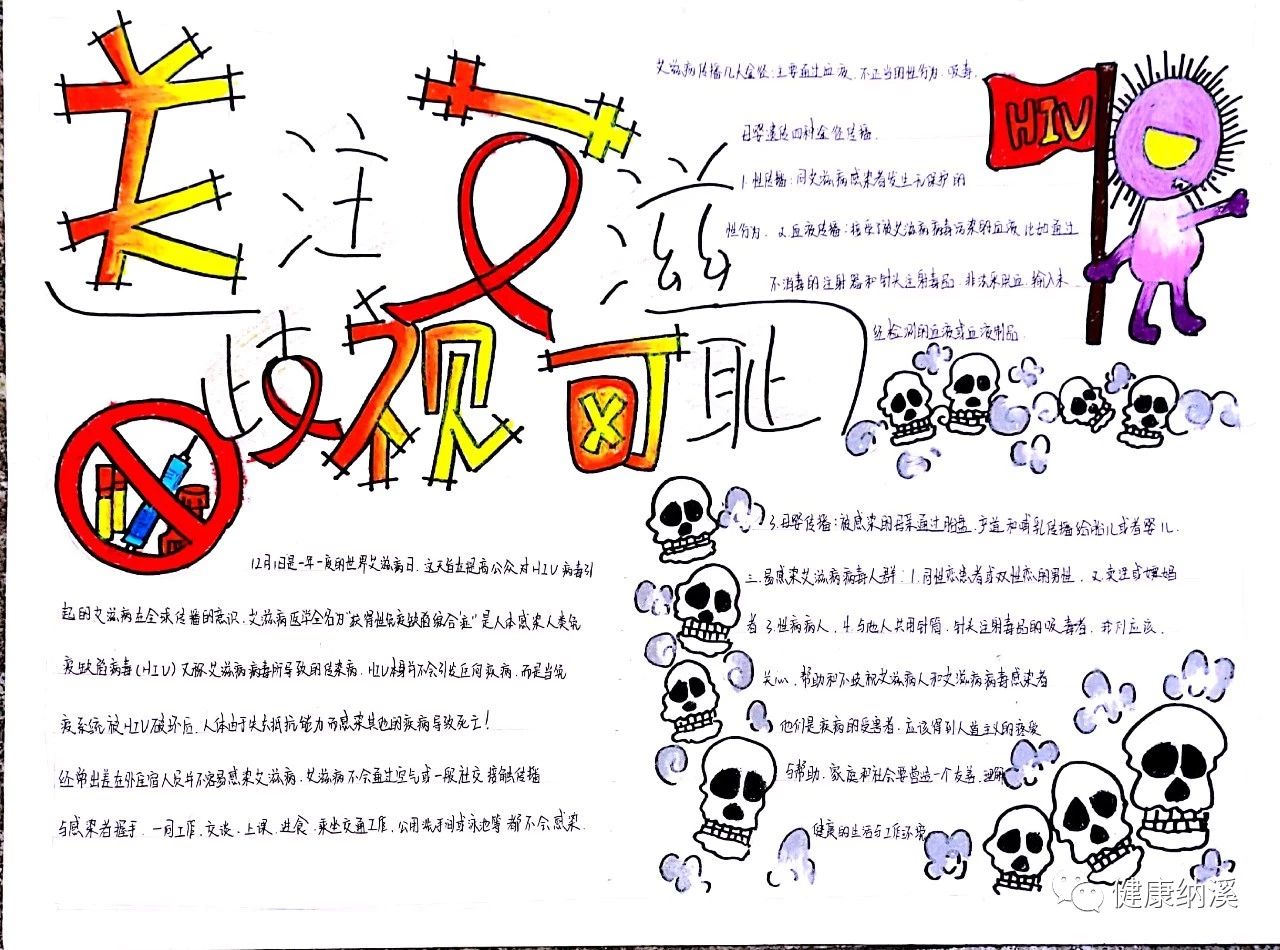 关注艾滋
歧视可耻
HIV
艾滋病传播几人全径:主要通过血液、不正当的性行为、吸毒、
母婴遗传四种全径传播.
1.性传播:同艾滋病感染者发生无保护的
性行为. 2.血液传播:接受了被艾滋病病毒污染的血液 比如通过
不消毒的注射器和针头注射毒品,非法采供血,输入未
经检测的血液或血液制品.
12月1日是一年一度的世界艾滋病日.这天旨在提高公众对HIV病毒引
起的艾滋病在全球传播的意识.艾滋病医学全名为“获得性免疫缺陷综合症”是人体感染人类免
疫缺陷病毒(HIV)又称艾滋病病毒所导致的传染病.HIV本身并不会引发任何疾病.而是当免
疫系统被HIV破坏后.人体由于失去抵抗能力而感染其他的疾病导致死亡!
经常出差在外住宿人员并不容易感染艾滋病.艾滋病不会通过空气或一般社交接触传播
与感染者握手.一同工作.交谈.上课.进食.乘坐交通工作.公用洗手间或泳池等都不会感染.
3.母婴传播:被感染的母亲通过胎盘.产道和哺乳传播给胎儿或者婴儿.
三.易感染艾滋病病毒人群:1.同性恋患者或双性恋的男性. 2.卖淫或嫖娼
者 3.性病病人. 4.与他人共用针筒.针头注射毒品的吸毒者.我们应该.
关心、帮助和不歧视艾滋病人和艾滋病病毒感染者
他们是疾病的受害者.应该得到人道主义的疼爱
与帮助.家庭和社会要营造一个友善.理解
健康的生活与工作环境
健康纳溪